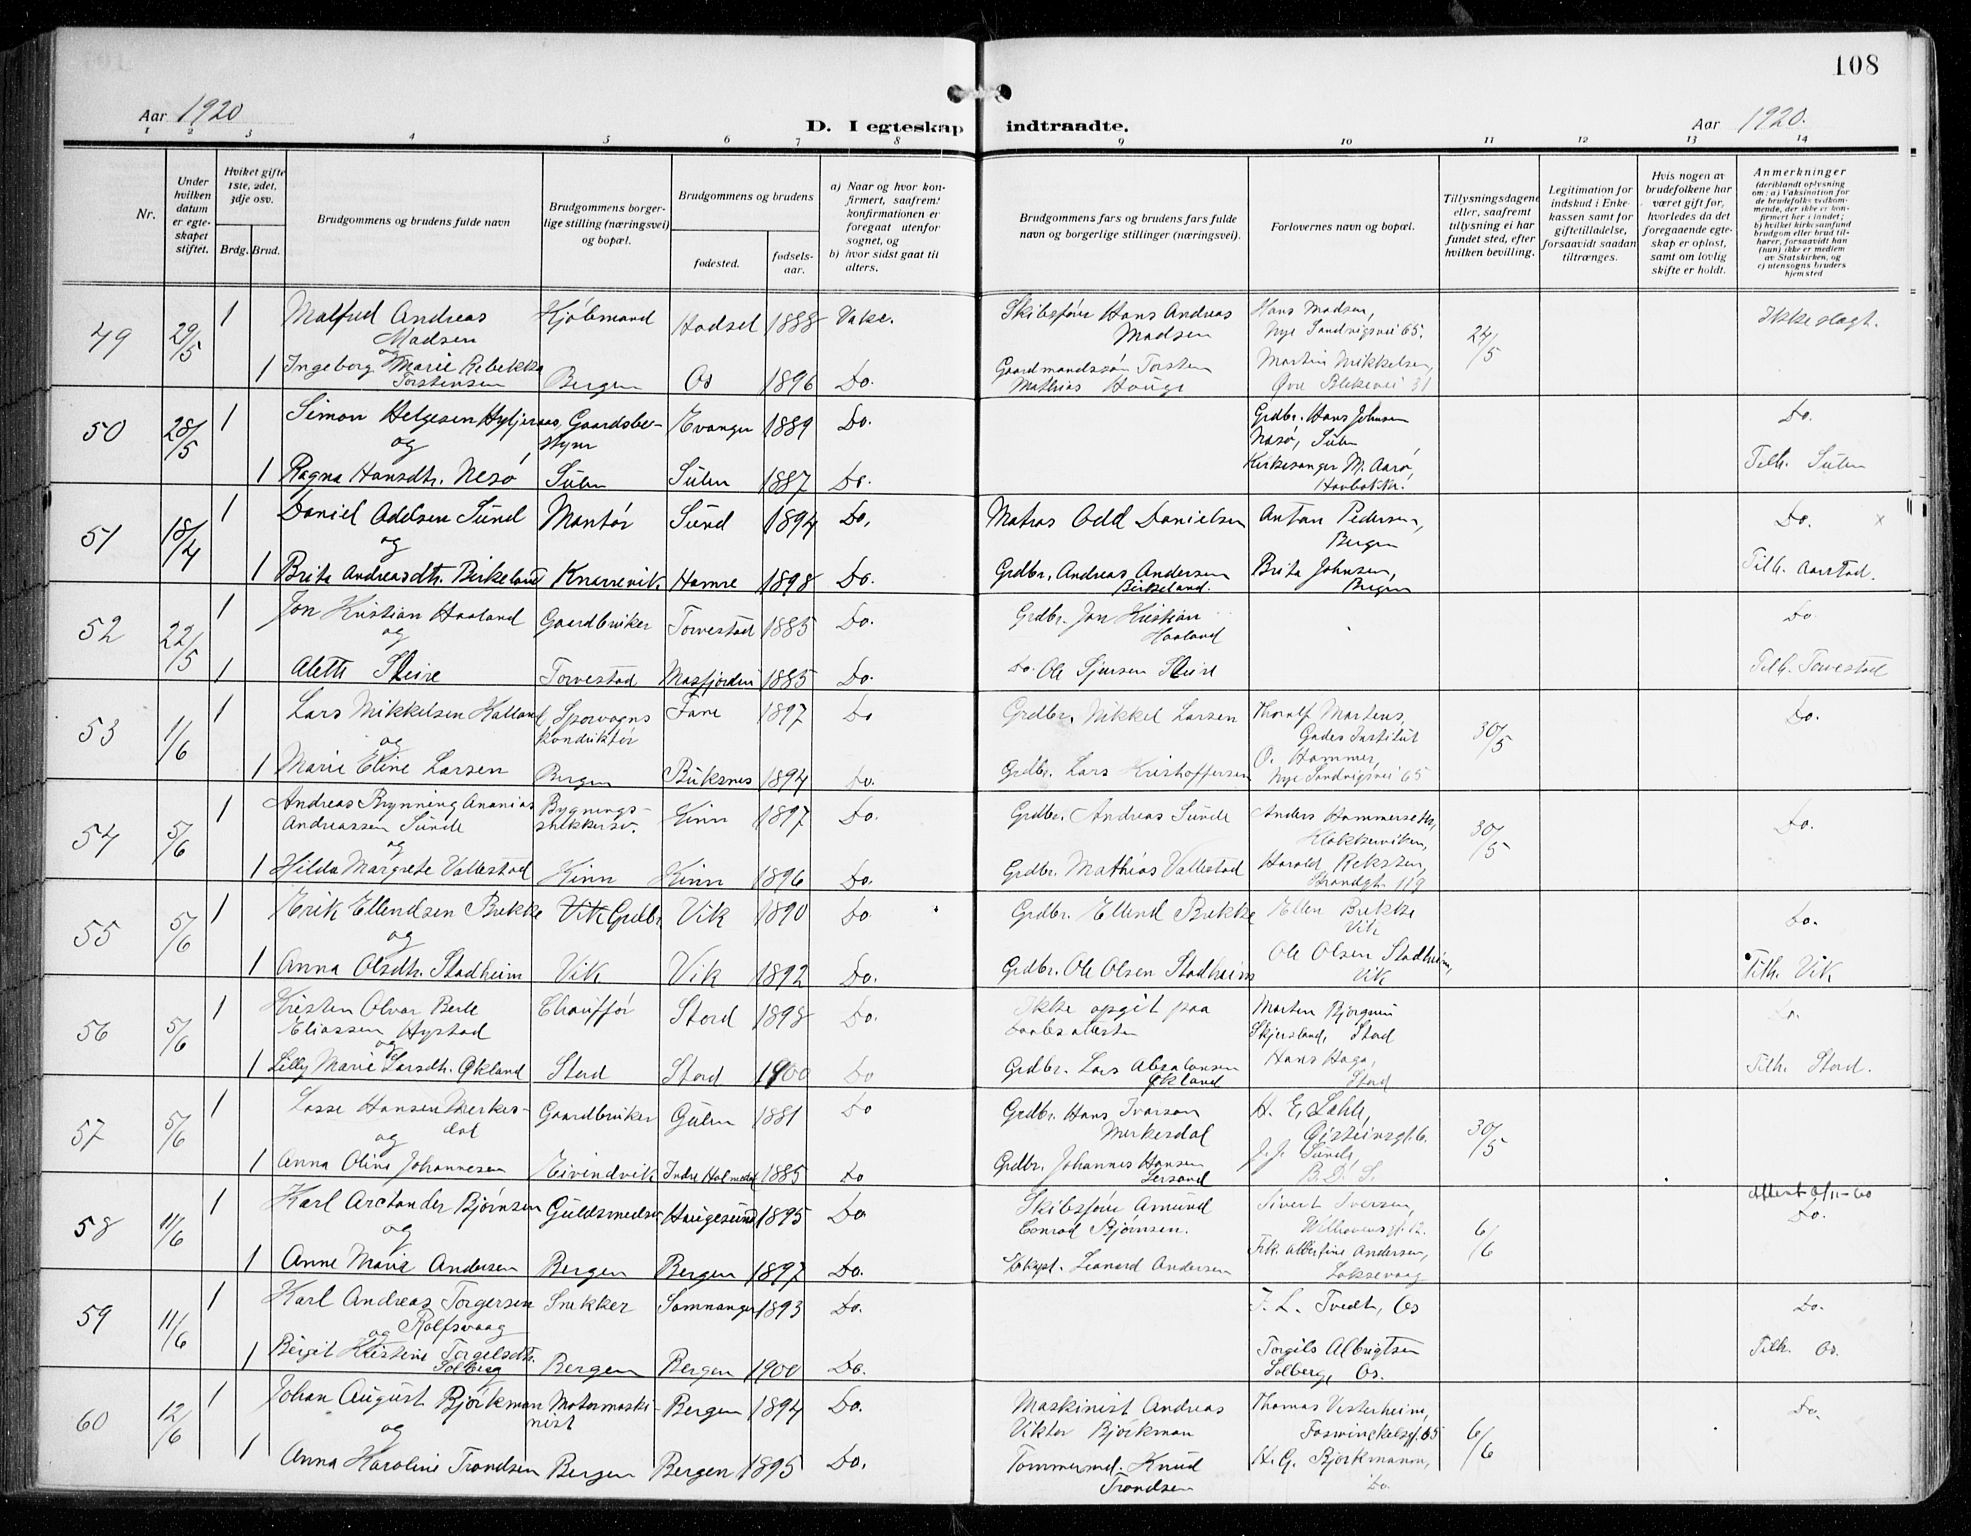 108
Aar 1920
D. I egteskap indtraadte.
Aar 1920.
1 2 3 4 5 6 7 8 9 10 11 12 13 14
Nr.
Under hvilken datum er egteskapet stiftet.
Hviket gifte 1ste, 2det, 3dje osv.
Brdg. Brud.
Brudgommens og brudens fulde navn
Brudgommens borgerlige stilling (næringsvei) og bopæl.
Brudgommens og brudens
fødested.
fødselsaar.
a) Naar og hvor konfirmert, saafremt konfirmationen er foregaat utenfor sognet, og
b) hvor sidst gaat til alters.
Brudgommens fars og brudens fars fulde navn og borgerlige stillinger (næringsvei).
Forlovernes navn og bopæl.
Tillysningsdagene eller, saafremt tillysning ei har fundet sted, efter hvilken bevilling.
Legitimation for indskud i Enkekassen samt for giftetilladelse, forsaavidt saadan tiltrænges.
Hvis nogen av brudefolkene har været gift før, hvorledes da det foregaaende egteskap er opløst, samt om lovlig skifte er holdt.
Anmerkninger
(deriblandt oplysning om: a) Vaksination for de brudefolks vedkommende, der ikke er konfirmert her i landet; b) hvilket kirkesamfund brudgom eller brud tilhører, forsaavidt han (hun) ikke er medlem av Statskirken, og c) utensogns bruders hjemsted
49 29/5 1 Malfred Andreas Madsen Kjøbmand Hadsel 1888 Vake. Skibsfører Hans Andreas Madsen Hans Madsen, Nye Sandvigsvei 65. 24/5 Ikke slagt.
og
1 Ingeborg Marie Rebekka Torstensen Bergen Os 1896 Do. Gaardmandssøn Torsten Mathias Hauge Martin Mikkelsen, Øvre Blekevei 31
50 28/5 1 Simon Helgesen Gaardsbestyrer Evanger 1889 Do. Grdbr. Hans Johnsen Nesø, Sulen Do.
og
1 Ragna Hansdtr. Nesø Sulen Sulen 1887 Do. Kirkesanger M. Aarø, Tilh. Sulen
51 18/4 1 Daniel Odelsen Sund Montør Sund 1894 Do. Matros Odd Danielsen Anton Pedersen, Bergen Do. x
og
1 Brita Andreasdtr. Birkeland Knarrevik Hamre 1898 Do. Grdbr. Andreas Andersen Birkeland. Brita Johnsen, Bergen Tilh. Aarstad.
52 22/5 1 Jon Kristian Haaland Gaardbruker Torvestad 1885 Do. Grdbr. Jon Kristian Haaland Do
og
1 Aleth Steire Torvestad Masfjorden 1885 Do. Do. Ole Sjursen Tilh. Torvestad
53 1/6 1 Lars Mikkelsen Kalland Sporvogns konduktør Fane 1897 Do Grdbr. Mikkel Larsen Thoralf Martens, Gades Institut 30/5 Do.
og
1 Marie Eline Larsen Bergen Buksnes 1894 Do. Grdbr. Lars Kristoffersen O. Hammer, Nye Sandvigsvei 65
54 5/6 1 Andreas Brynning Ananias Andreassen Sunde Bygningssnekkersv. Kinn 1897 Do. Grdbr. Andreas Sunde Anders Hammerseth, Klokkerviken, 30/5 Do.
og
1 Hilda Margrete Vallestad Kinn Kinn 1896 Do. Grdbr. Mathias Vallestad Harald Reksten, Strandgt. 119
55 5/6 1 Erik Ellendsen Brekke Vik Grdbr. Vik 1890 Do Grdbr. Ellend Brekke Ellen Brekke Vik Do.
og
1 Anna Olsdtr. Stadheim Vik Vik 1892 Do. Grdbr. Ole Olsen Stadheim Ole Olsen Stadheim, Vik Tilh. Vik
56 5/6 1 Kristen Olvar Berle Eliassen Hystad Chauffør Stord 1898 Do. Ikke opgit paa daabsattesten Morten Bjørgvin Skjersland, Stord Do.
og
1 Lilly Marie Larsdtr. Økland Stord Stord 1900 Do Grdbr. Lars Absalonsen Økland Hans Haga, Stord Tilh. Stord.
57 5/6 1 Lasse Hansen Merkesdal Gaardbruker Gulen 1881 Do Grdbr. Hans Ivarson Merkesdal H. E. 30/5
og
1 Anna Oline Johannesen Eivindvik Indre Holmedal 1885 Do Grdbr. Johannes Hansen J. J. Sunde, B. D. S.
58 11/6 1 Karl Arctander Bjørnsen Guldsmedsv. Haugesund 1895 Do Skibsfører Amund Conrad Bjørnsen. Sivert Iversen, Welhavensgt. 12. 6/6 Do.
og
1 Anne Marie Andersen Bergen Bergen 1897 Do. Leonard Andersen Frk. Albertine Andersen, Laksevaag
59 11/6 1 Karl Andreas Torgersen Rolfsvaag Snekker Samnanger 1893 Do. J. L. Tvedt, Os Do.
og
1 Birgit Kristine Torgelsdtr. Solberg Bergen Bergen 1900 Do. Torgils Albrigtsen Solberg, Os. Tilh. Os.
60 12/6 1 Johan August Bjørkman Motormaskinist Bergen 1894 Do. Maskinist Andreas Viktor Bjørkman Thomas Vesterheim, Foswinckelsgt. 65 6/6 Do.
og
1 Anna Karoline Trondsen Bergen Bergen 1895 Do. Tømmermd. Knud Trondsen H. G. Bjørkmann, Do.